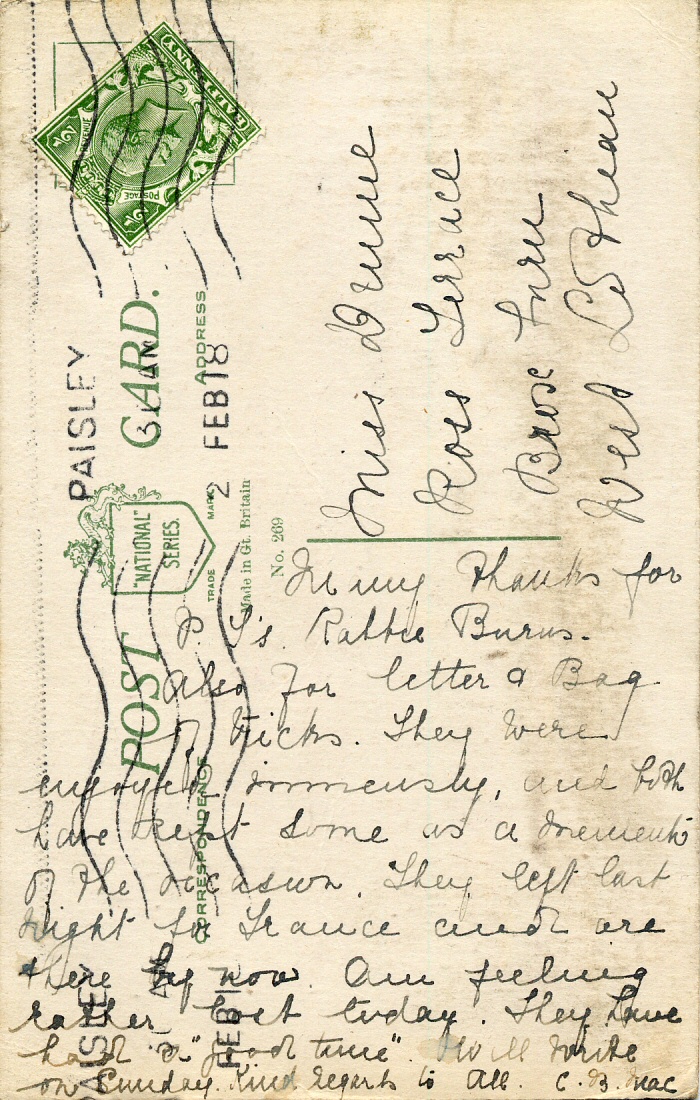 POST CARD.
"NATIONAL"
SERIES.
TRADE MARK
Made in Gt. Britain
No. 269
CORRESPONDENCE
ADDRESS
HALFPENNY
POSTAGE
REVENUE
PAISLEY
2 FEB 18
PAISLEY
FEB 1
Miss
Ross Terrace
Brox burn
West Lothian
Many thanks for
P. C's. Rabbie Burns.
Also for letter & Bag
of Tricks. They were
enjoyed immensly, and both
have kept some as a memento
of the occasion. They left last
night for France and are
there by now. Am feeling
rather lost today. They have
had a "good time". Will write
on Sunday. Kind regards to All. C. B. Mac